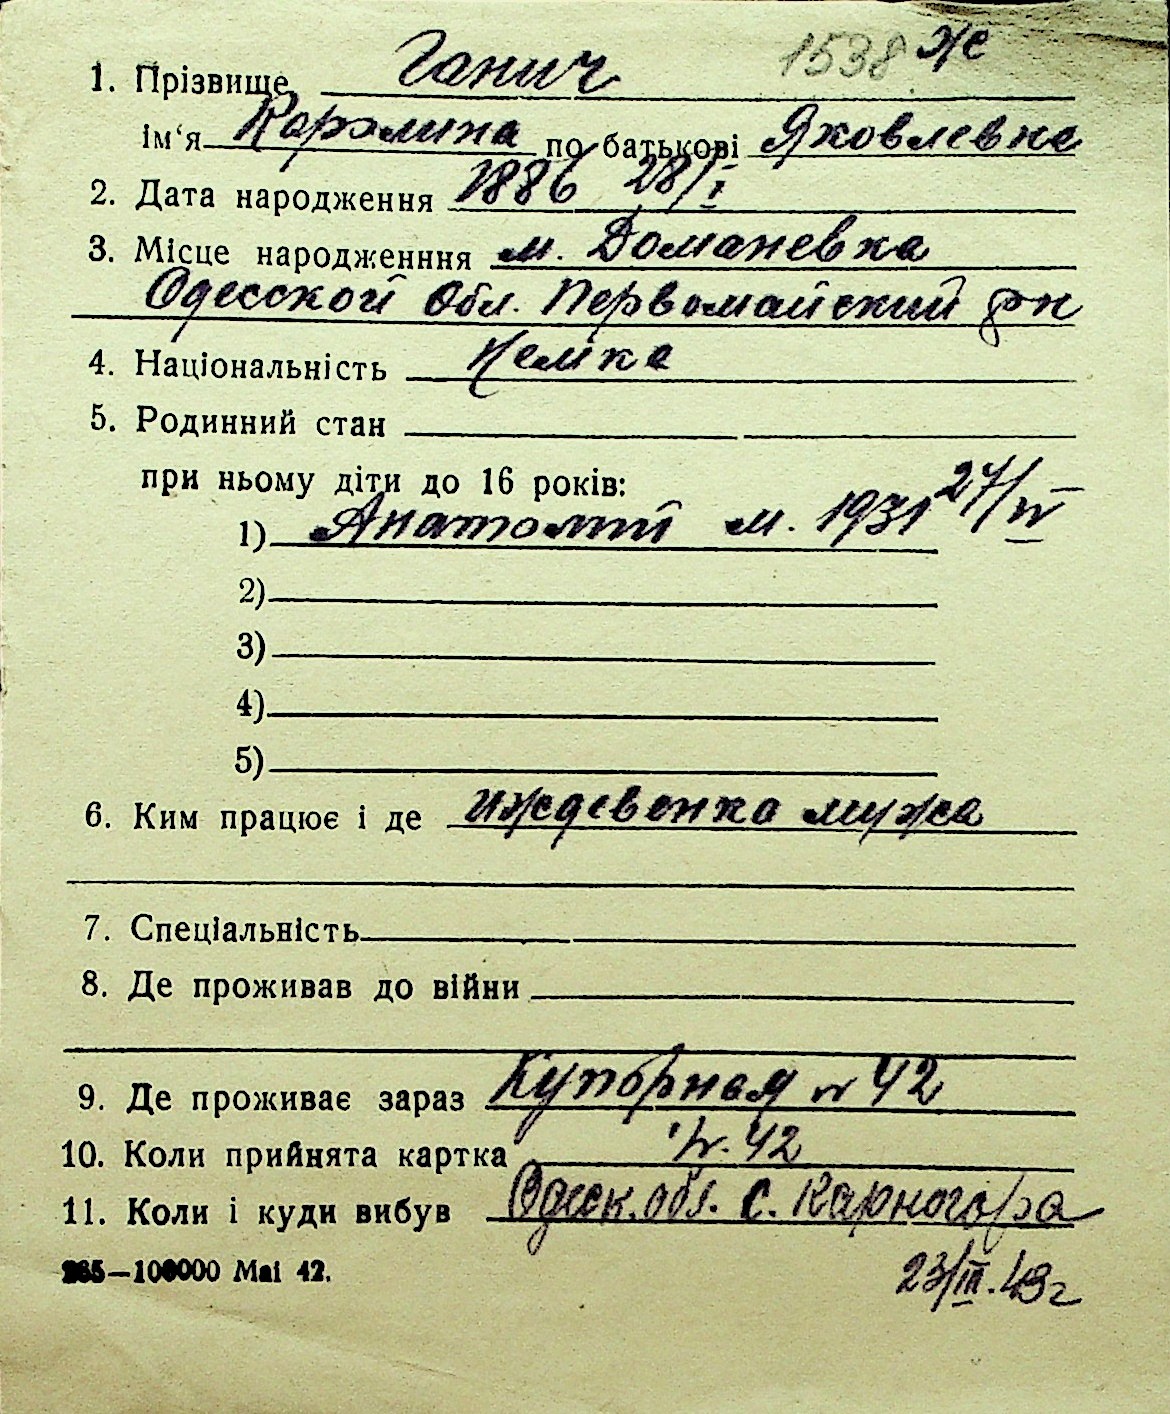 1538 же
1. Прізвище Ганич
ім'я Каролина по батькові Яковлевна
2. Дата народження 1886 28/I
3. Місце народженння м. Доманевка
Одесской Обл. Первомайский рн
4. Національність Немка
5. Родинний стан
при ньому діти до 16 років:
1) Анатолий м. 1931 27/IV
2)
3)
4)
5)
6. Ким працює і де иждевенка мужа
7. Спеціальність
8. Де проживав до війни
9. Де проживає зараз Купорная № 42
10. Коли прийнята картка 42
11. Коли і куди вибув Одесск. обл. с. Карногора
23/III.43 г
265—100000 Mai 42.